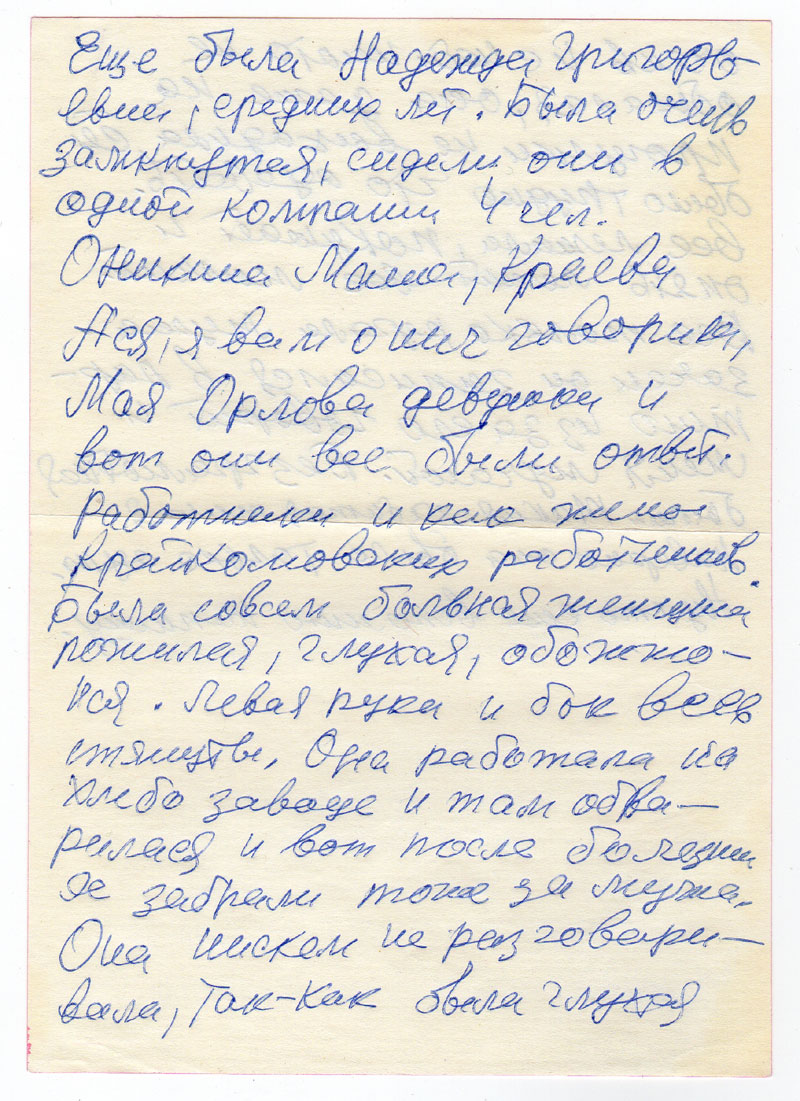 Еще была Надежда Григорь-
евна, средних лет. Была очень
замкнутая, сидели они в
одной компании 4 чел.
Оникина Маша, Краева
Ася, я вам о них говорила,
Мая Орлова девушки и
вот они все были ответ.
работники и как жены
Крайкомовских работников.
Была совсем больная женщина
пожилая, глухая, обожжо-
ная. Левая рука и бок весь
стянуты. Она работала на
хлебо заводе и там обва-
рилася и вот после болезни
ее забрали тоже за мужа.
Она нискем не разговари-
вала, так-как была глухая